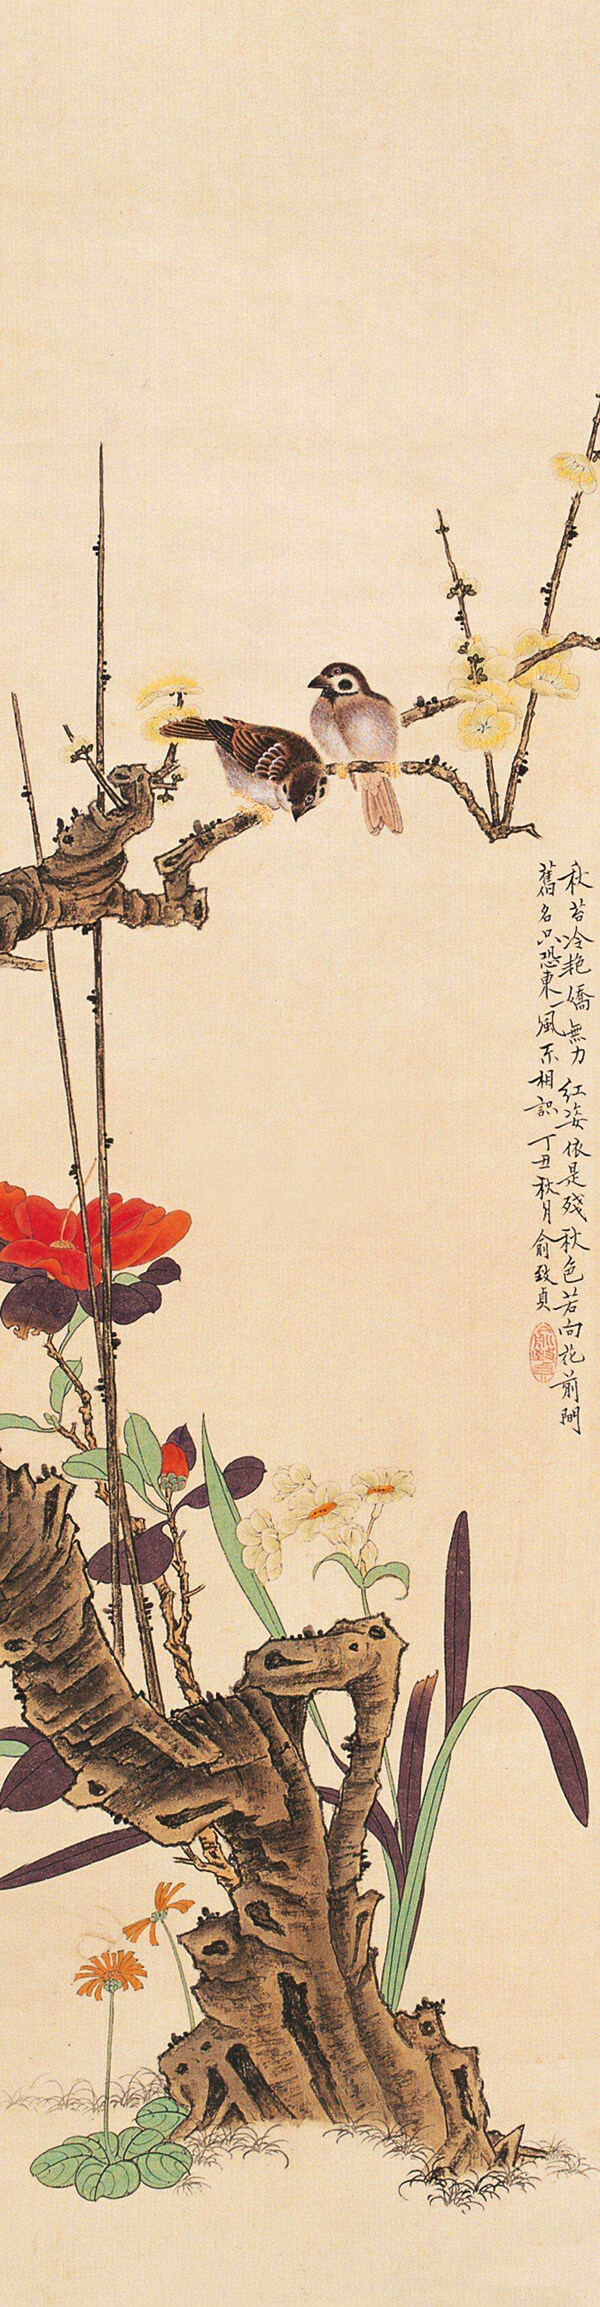 秋苔冷艳嬌無力紅姿依是殘秋色若向花前問
舊名只恐東風不相識丁丑秋月俞致貞